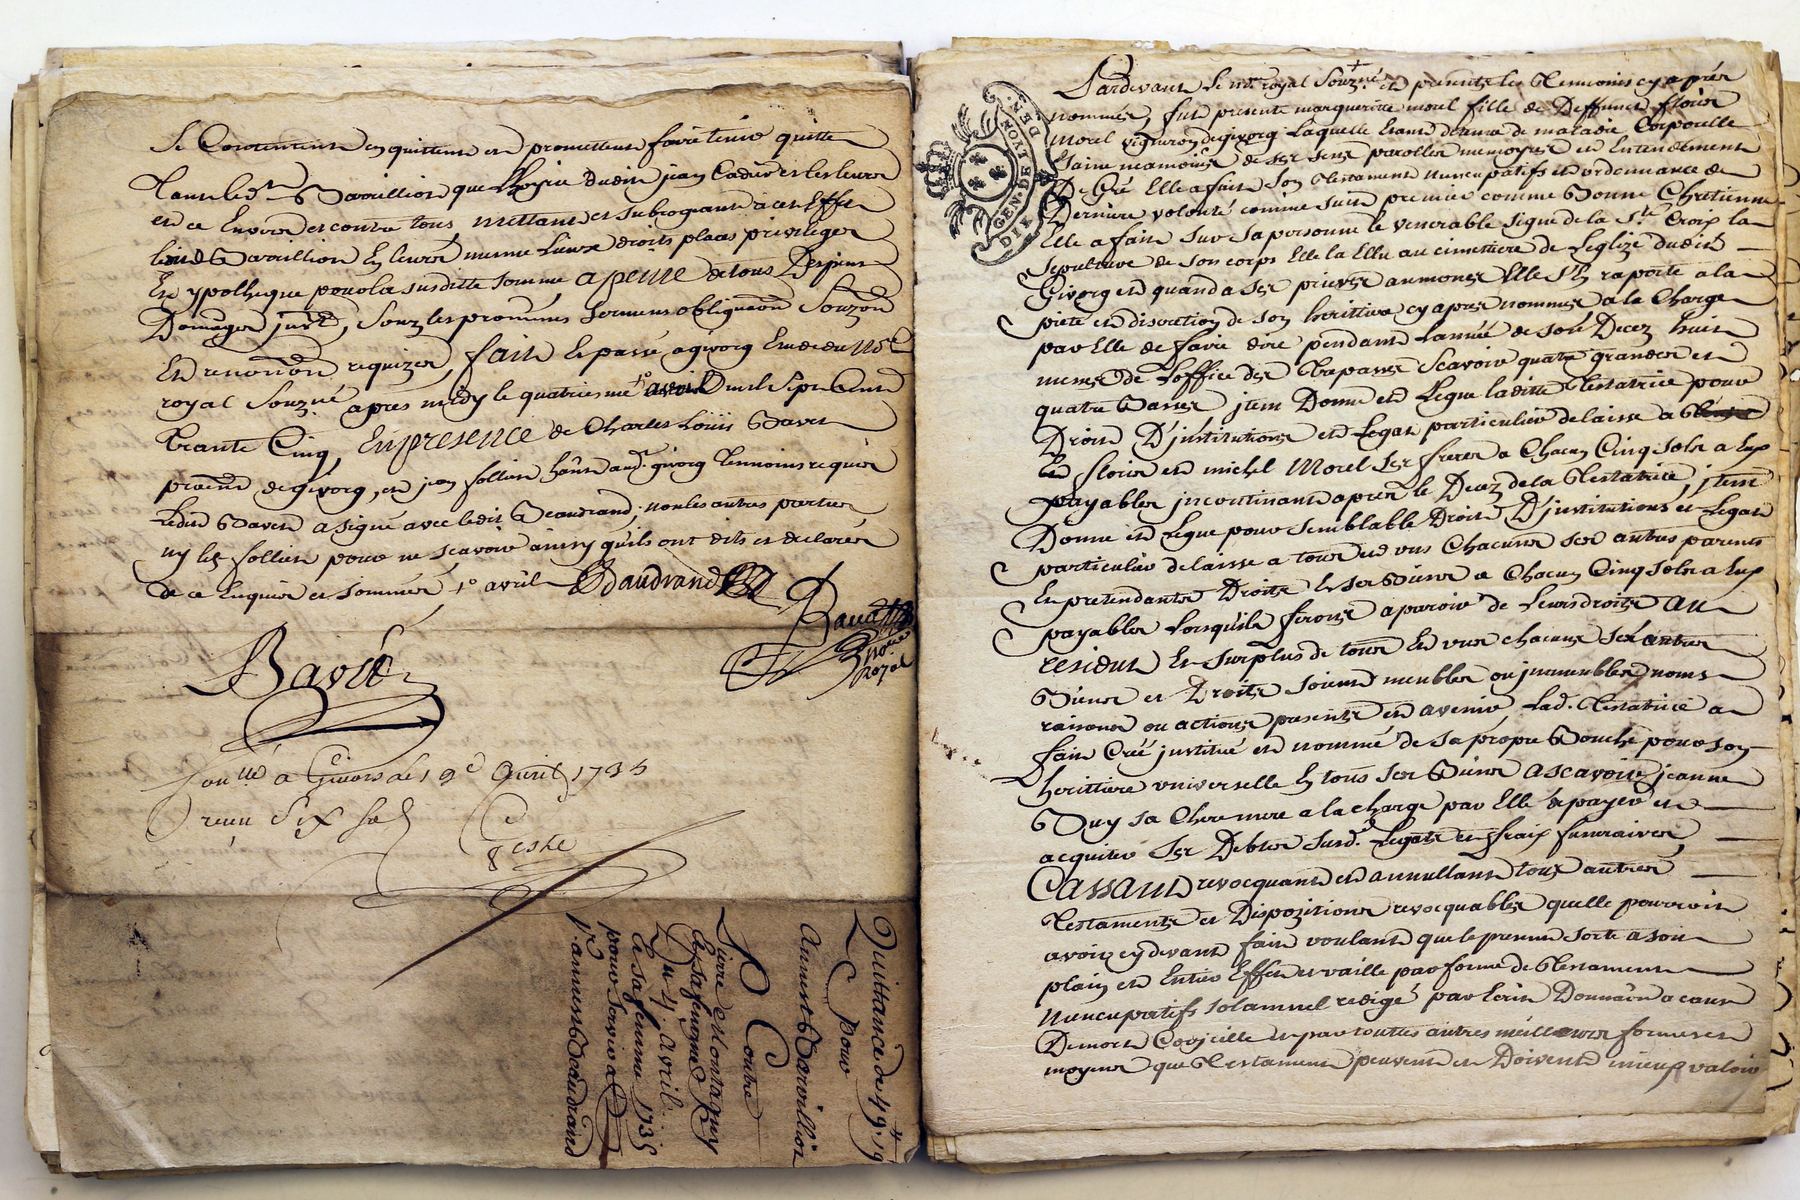 Se Contentent en quittent et promettent faire tenir quitte
tant led. Barvillion que Lhoyrie dudit jean Cadier et les leurs
et ce Envers et contre tous, mettant et subrogeant a cet Effet
led Barvillion En leurs mesme Lieux droits places privileges
Et ypotheque pour la susditte somme a peine de tous Despens
Domages
Et requizes, fait Et passé a givorg Etude du no.re
royal Souz.né apres midy le quatriesme avril mil sept Cent
trante Cinq, En presence de Charles Louis Bavet
praticien de givorg, et jean follier
Ledit Bavet a signé avec ledit Beaudrand. non les autres parties
ny led follier pour ne scavoir ainsy quils ont dits et declarés
de ce Enquis et sommés 1.° avril Bdaudrand
Bavet
no.re
Royal
Con.llé a Givors le 19e Avril 1735
reçu six sols
Quittance de 49. 19
pour
Contre
Pierre et Montagny
et sa femme
Du 4 avril 1735
pour servir a
Pardevant Le no.re royal Souz.né et présents les temoins cy apres
nommés, fut presente marguerite morel fille de Deffunct floris
Morel vigneron de givorg Laquelle Etant detenue de maladie Corporelle
Saine neamoins de ses sens parolles memoyres et Entendement
De Gré Elle a fait Son testament nuncupatifs et ordonnance de
Derniere volonté comme suit premier comme Bonne Chretienne
Elle a fait sur sa personne le venerable signe de la Ste Croix la
Sepulture de son corps Elle la Ellu au cimettiere de Leglize dudit
Givorg et quand a ses prieres aumones Elle s'En raporte a la
pieté et discretion de son herittiere cy apres nommée a la Charge
par Elle de faire dire pendant Lannée de son Decez huit
messes de Loffice des trepassés Scavoir quatre grandes et
quatre Basses jtem Donne et Legue laditte testatrice pour
Droit D'jnstitutions et Legat particulier delaisse a
floris et michel Morel ses freres a Chacun Cinq sols a Eux
payables jncontinant apres le Decez de la testatrice, jtem
Donne et Legue pour semblable Droit D'jnstitutions et Legat
particulier delaisse a tous et uns Chacuns ses autres parents
Et pretendants Droits Et ses Biens a Chacun Cinq sols a Eux
payables Lorsquils feront aparoir de Leurs droits Au
residut Et surplus de tous et uns chacuns ses autres
Biens et Droits soient meubles ou jmmeubles noms
raisons ou actions presents et avenir Lad. testatrice a
fait Créé jnstitué et nommé de sa propre Bouche pour son
herittiere universelle En tous ses Biens ascavoir jeanne
Buy sa Chere mere a la charge par Elle de payer et
acquiter Ses Debtes susd. Legats et fraix funeraires,
Cassant revocquant et annullant tous autres
testaments et Dispozitions revocquables quelle pourroit
avoir cy devant fait voulant que le present sorte a son
plain et Entier Effet et vaille par forme de testament
Nuncupatifs solamnel redigé par Ecrit Donnation a cause
De mort Codicille et par touttes autres meilleures formes et
moyens que testament peuvent et Doivent mieux valoir